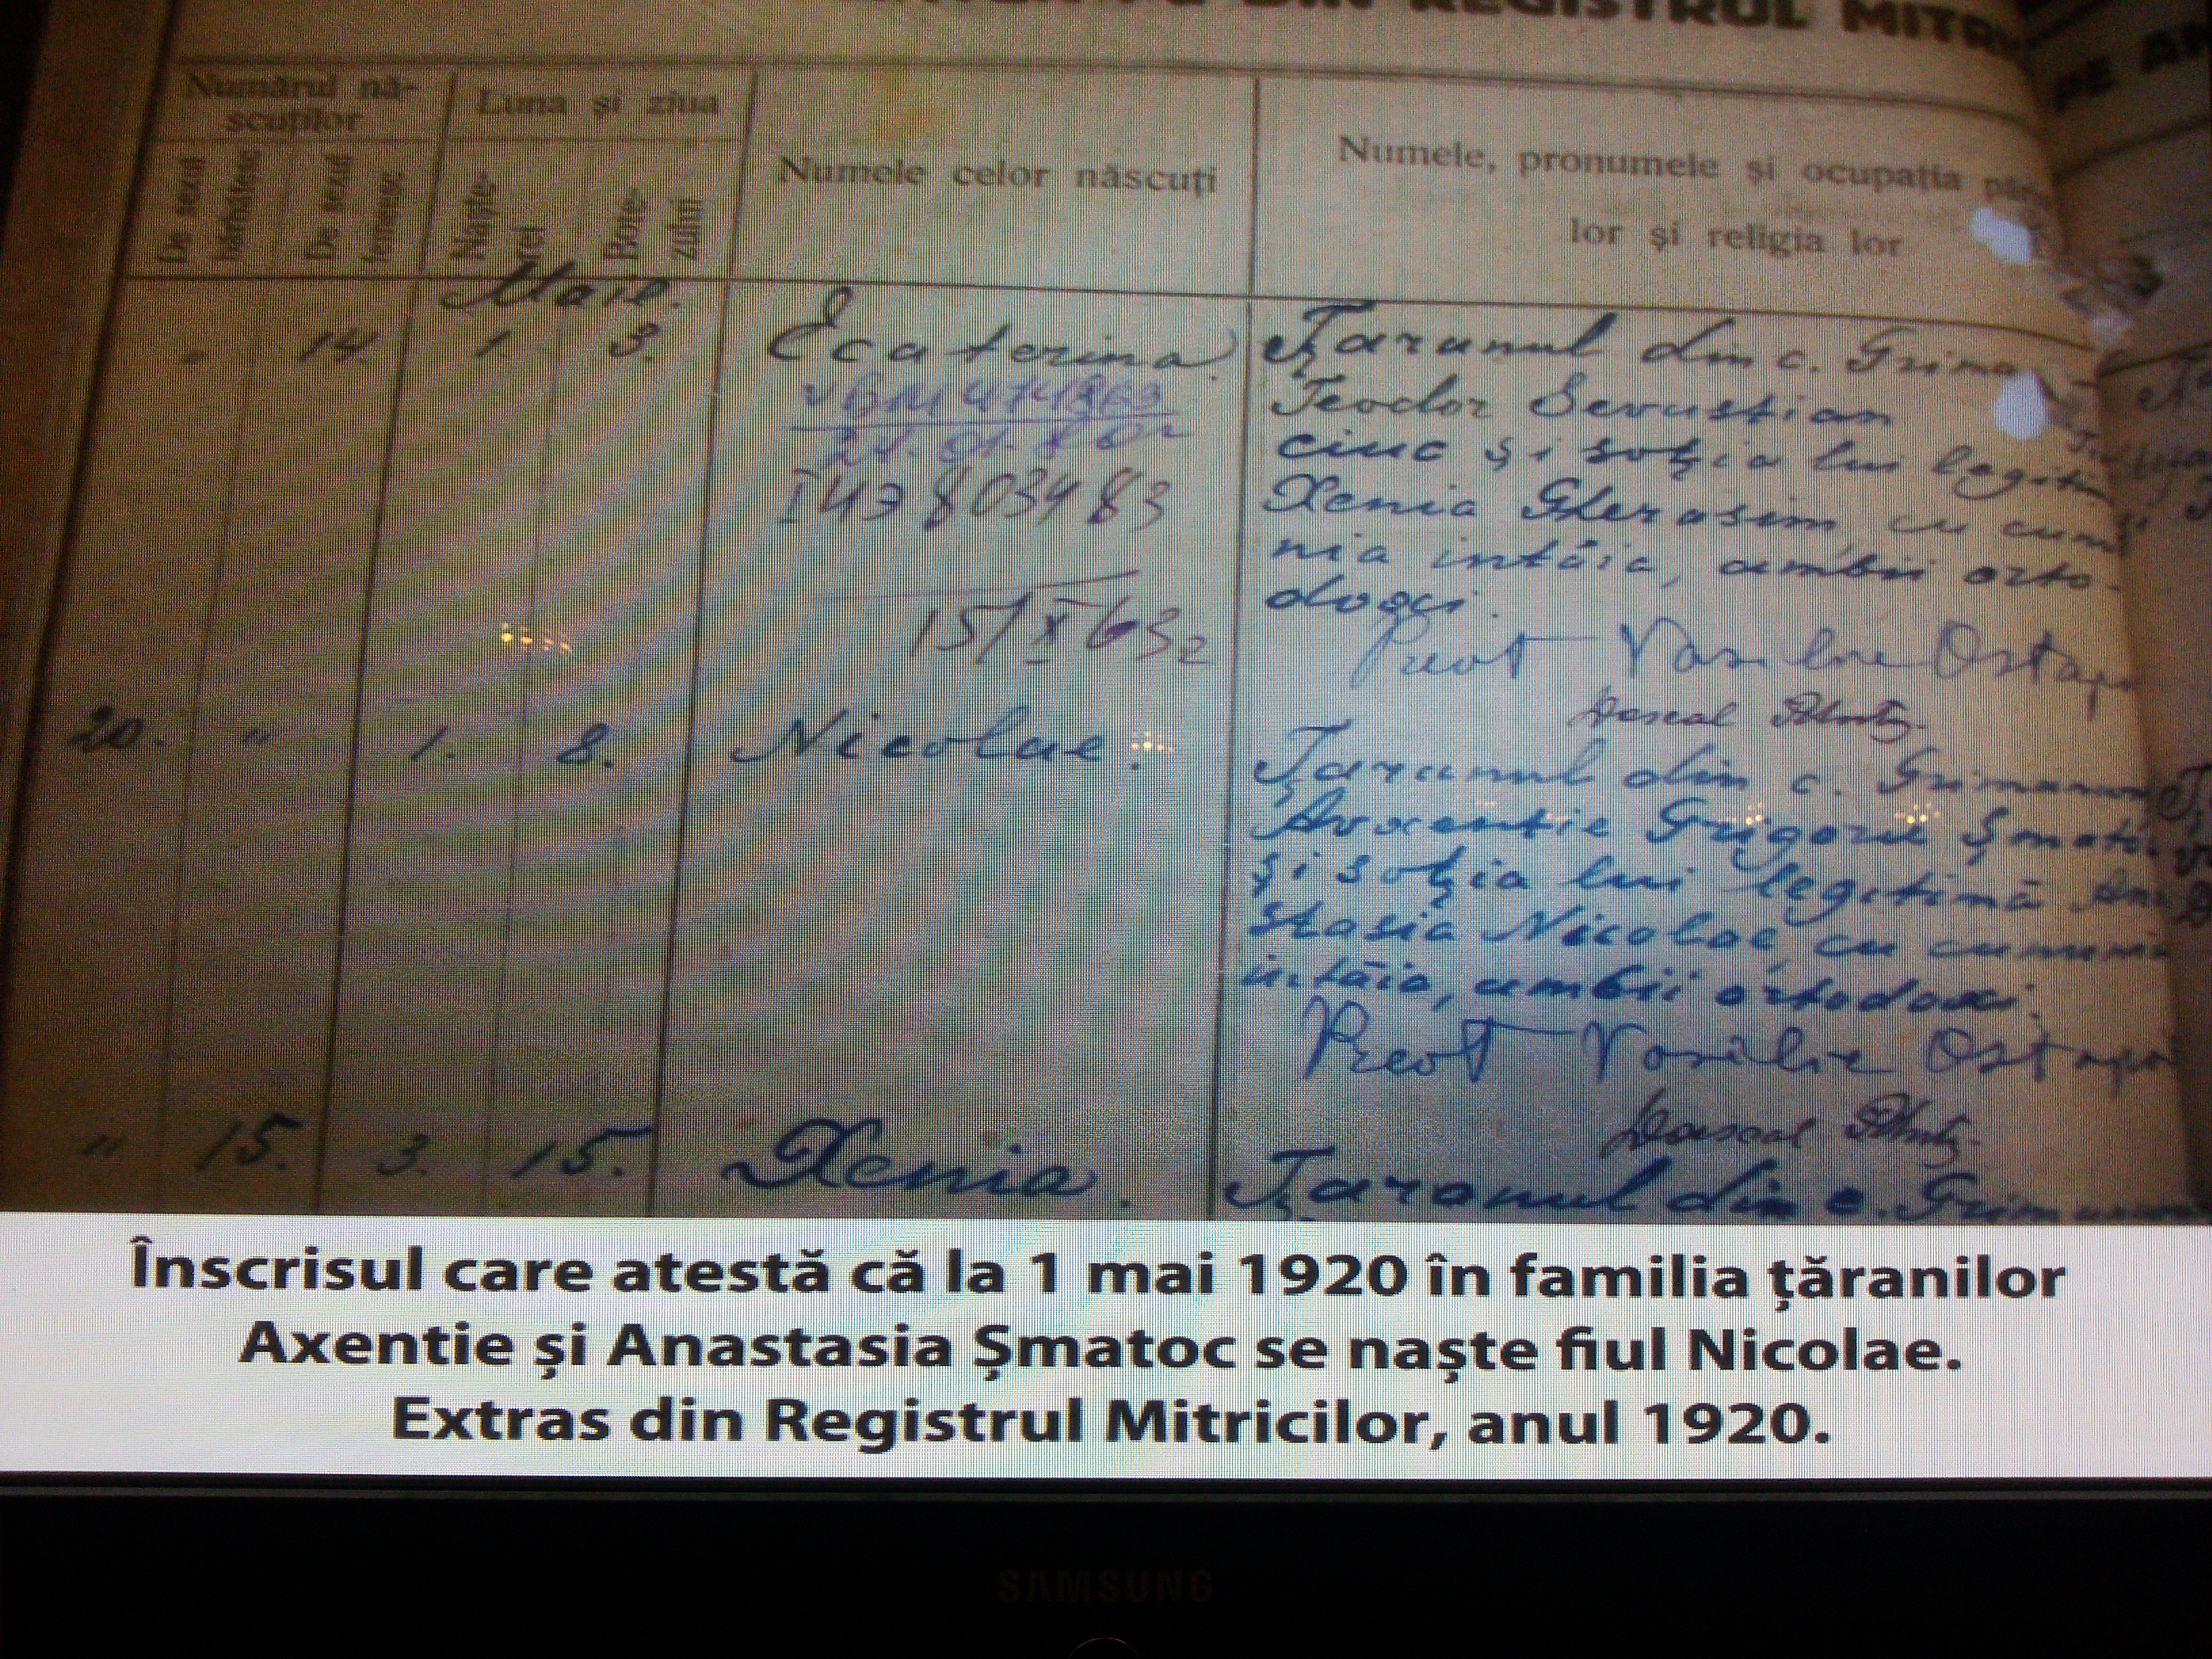 DIN REGISTRUL MITRI
PE A
Numărul nă-
scuților
Luna și ziua
Numele celor născuți
Numele, pronumele și ocupația pări
lor și religia lor
De sexul
bărbătesc
De sexul
femeesc
Naște-
rei
Bote-
zului
Maie.
" 14. 1. 3. Ecaterina.
Țaranul din c. Grima
Teodor
ciuc și soția lui legitim
Xenia Gherasim, cu cunu
nia intăia, ambii orto-
docsi.
I 478034 83
15/X 63
Preot Vasilie Ostap
Dascal
20. " 1. 8. Nicolae.
Țaranul din c. Grimanc
Avxentie Grigorie Șmato
și soția lui legitimă Ana
stasia Nicolae, cu cununi
intăia, ambii ortodocsi.
Preot Vasilie Ostapo
Dascal
" 15. 3. 15. Xenia.
Țaranul din c. Grimanc
Înscrisul care atestă că la 1 mai 1920 în familia țăranilor
Axentie și Anastasia Șmatoc se naște fiul Nicolae.
Extras din Registrul Mitricilor, anul 1920.
SAMSUNG